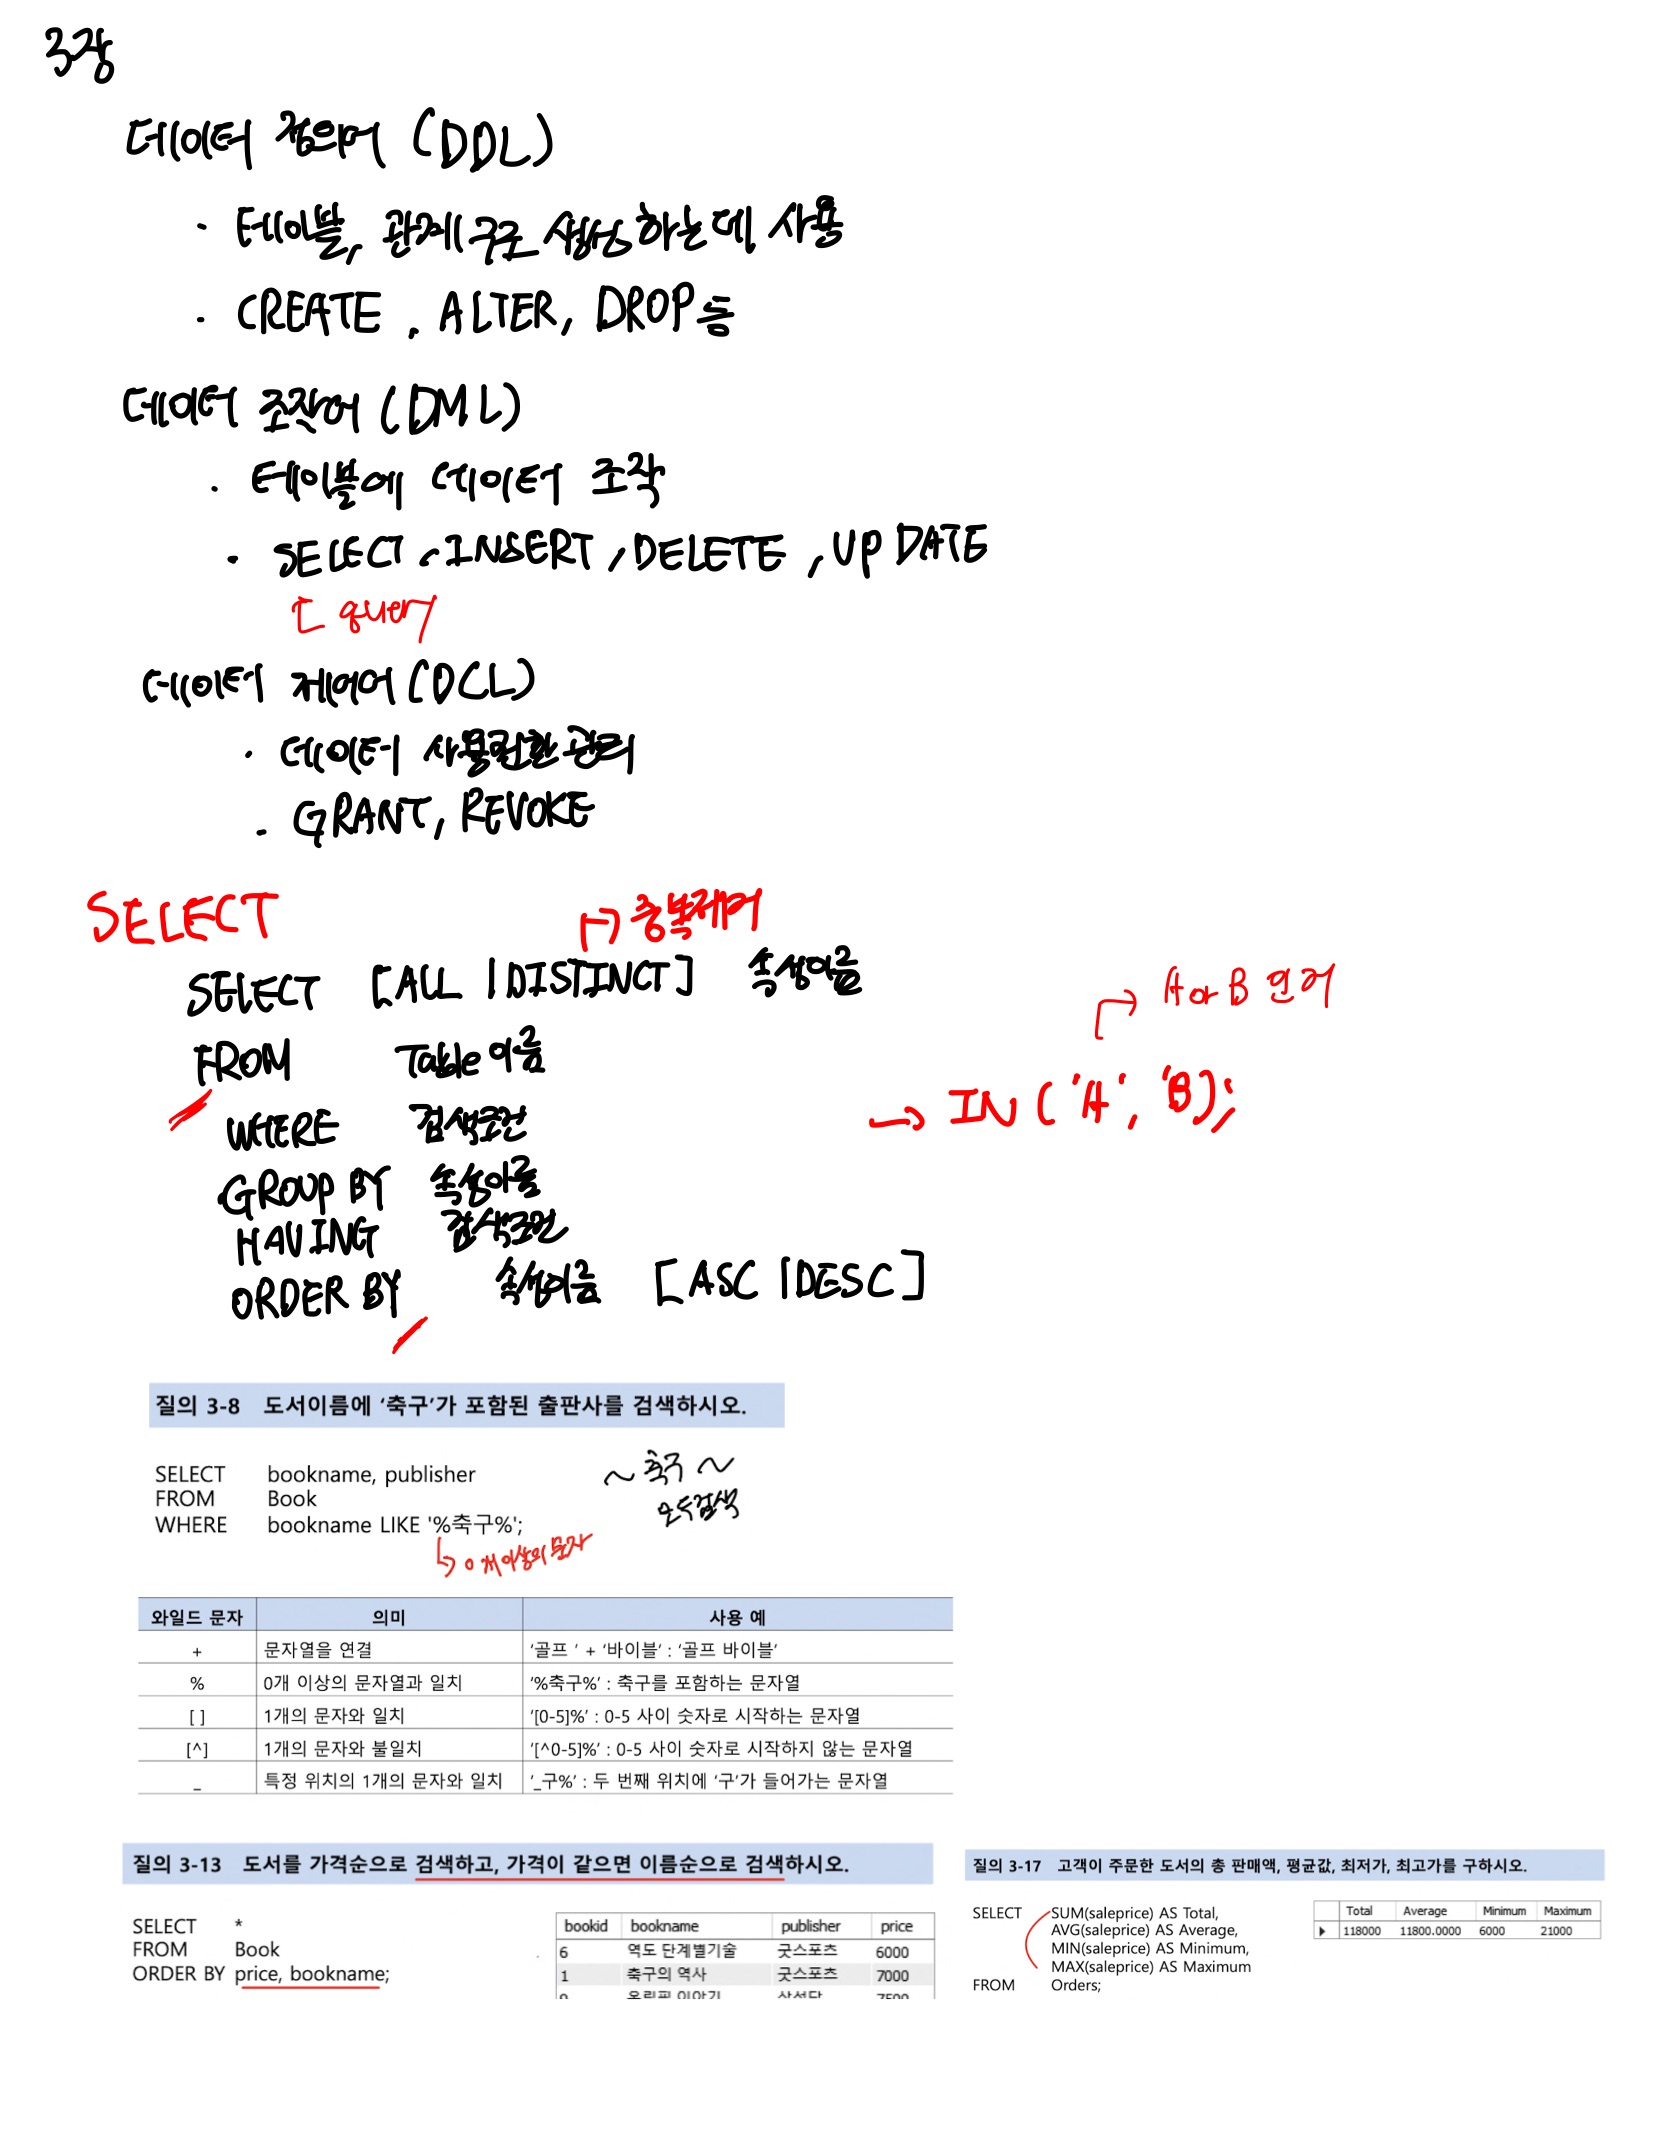 3장
데이터 정의어 (DDL)
· 테이블, 관계구조 생성하는데 사용
· CREATE, ALTER, DROP 등
데이터 조작어 (DML)
· 테이블에 데이터 조작
· SELECT, INSERT, DELETE, UPDATE
query
데이터 제어어 (DCL)
· 데이터 사용권한 관리
· GRANT, REVOKE
SELECT
→ 중복제거
SELECT [ALL | DISTINCT] 속성이름
→ A or B
FROM Table 이름
→ IN ('A', 'B');
WHERE 검색조건
GROUP BY 속성이름
HAVING 검색조건
ORDER BY 속성이름 [ASC | DESC]
질의 3-8 도서이름에 ‘축구’가 포함된 출판사를 검색하시오.
SELECT bookname, publisher
FROM Book
WHERE bookname LIKE '%축구%';
~ 축구 ~
모두검색
↳ 0개이상의 문자
와일드 문자 의미 사용 예
+ 문자열을 연결 ‘골프 ’ + ‘바이블’ : ‘골프 바이블’
% 0개 이상의 문자열과 일치 ‘%축구%’ : 축구를 포함하는 문자열
[ ] 1개의 문자와 일치 ‘[0-5]%’ : 0-5 사이 숫자로 시작하는 문자열
[^] 1개의 문자와 불일치 ‘[^0-5]%’ : 0-5 사이 숫자로 시작하지 않는 문자열
_ 특정 위치의 1개의 문자와 일치 ‘_구%’ : 두 번째 위치에 ‘구’가 들어가는 문자열
질의 3-13 도서를 가격순으로 검색하고, 가격이 같으면 이름순으로 검색하시오.
SELECT *
FROM Book
ORDER BY price, bookname;
bookid bookname publisher price
6 역도 단계별기술 굿스포츠 6000
1 축구의 역사 굿스포츠 7000
질의 3-17 고객이 주문한 도서의 총 판매액, 평균값, 최저가, 최고가를 구하시오.
SELECT SUM(saleprice) AS Total,
AVG(saleprice) AS Average,
MIN(saleprice) AS Minimum,
MAX(saleprice) AS Maximum
FROM Orders;
Total Average Minimum Maximum
118000 11800.0000 6000 21000